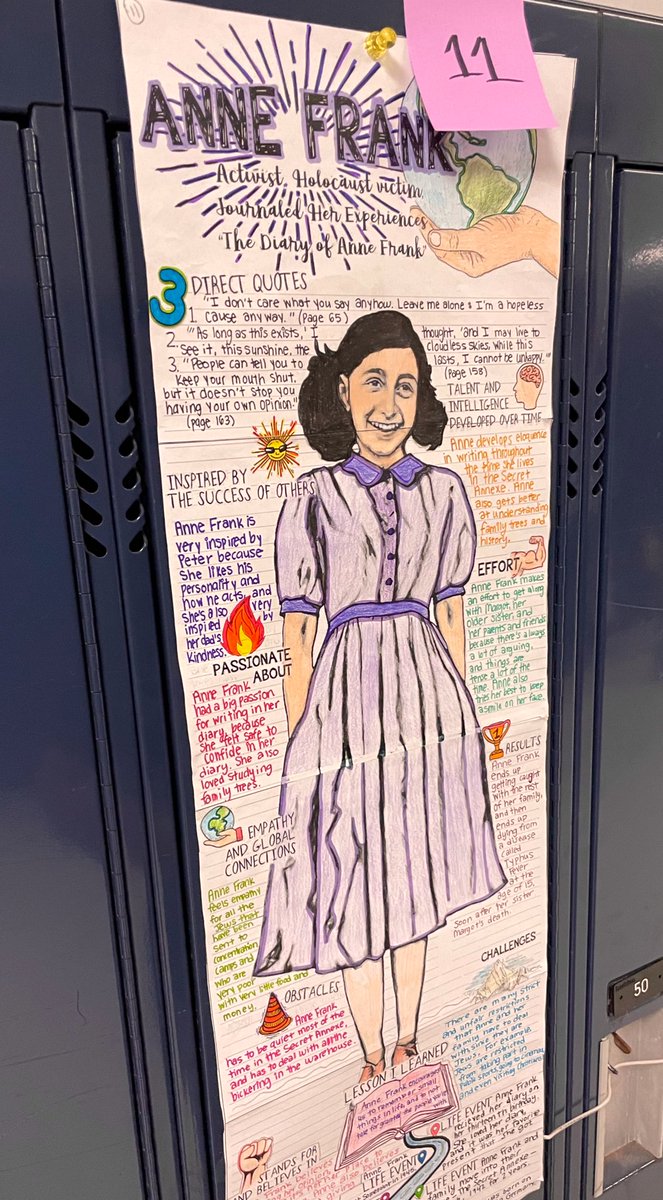 11
11
ANNE FRANK
Activist, Holocaust victim,
Journaled Her Experiences
"The Diary of Anne Frank"
3 DIRECT QUOTES
1. "I don't care what you say anyhow. Leave me alone & I'm a hopeless
cause anyway." (Page 65)
2. "'As long as this exists,' I thought, 'and I may live to
See it, this sunshine, the cloudless skies, while this
lasts, I cannot be unhappy.'"
(Page 158)
3. "People can tell you to
keep your mouth shut,
but it doesn't stop you
having your own opinion."
(page 163)
TALENT AND
INTELLIGENCE
DEVELOPED OVER TIME
Anne develops eloquence
in writing throughout
the time she lives
in the Secret
Annexe. Anne
also gets better
at understanding
family trees and
history.
INSPIRED BY
THE SUCCESS OF OTHERS
Anne Frank is
very inspired by
Peter because
She likes his
personality and
how he acts, and
She's also very
inspired by
her dad's
kindness.
EFFORT
Anne Frank makes
an effort to get along
with Margot, her
older sister, and
her parents and friends
because there's always
a lot of arguing,
and things are
tense a lot of the
time. Anne also
tries her best to keep
a smile on her face.
PASSIONATE
ABOUT
Anne Frank
had a big passion
for writing in her
diary, because
She felt safe to
confide in her
diary. She also
loved studying
family trees.
RESULTS
Anne Frank
ends up
getting caught
with the rest
of her family,
and then
ends up
dying from
a disease
called
Typhus
Fever
at the
age of 15,
soon after her sister
Margot's death.
EMPATHY
AND GLOBAL
CONNECTIONS
Anne Frank
feels empathy
for all the
Jews that
have been
sent to
concentration
camps and
who are
very poor
with very little food and
money.
CHALLENGES
There are many strict
and unfair restrictions
that Anne and her
family have to deal
with since they are
Jews. For example,
Jews are restricted
from taking part in
Public sports, going to cinemas,
and even visiting Christians.
OBSTACLES
Anne Frank
has to be quiet most of the
time in the Secret Annexe,
and has to deal with all the
bickering in the warehouse.
LESSON I LEARNED
Anne Frank encourages
us to remember small
things in life and to not
take for granted the people
with
STANDS FOR
AND BELIEVES IN
LIFE EVENT Anne Frank
received her diary on
her thirteenth birthday.
She loved her diary,
and it was her favorite
present that she got
LIFE EVENT Anne Frank and
family move into the
Secret Annexe
for 2 years.
Anne Frank
LIFE EVENT
LIFE EVENT
50